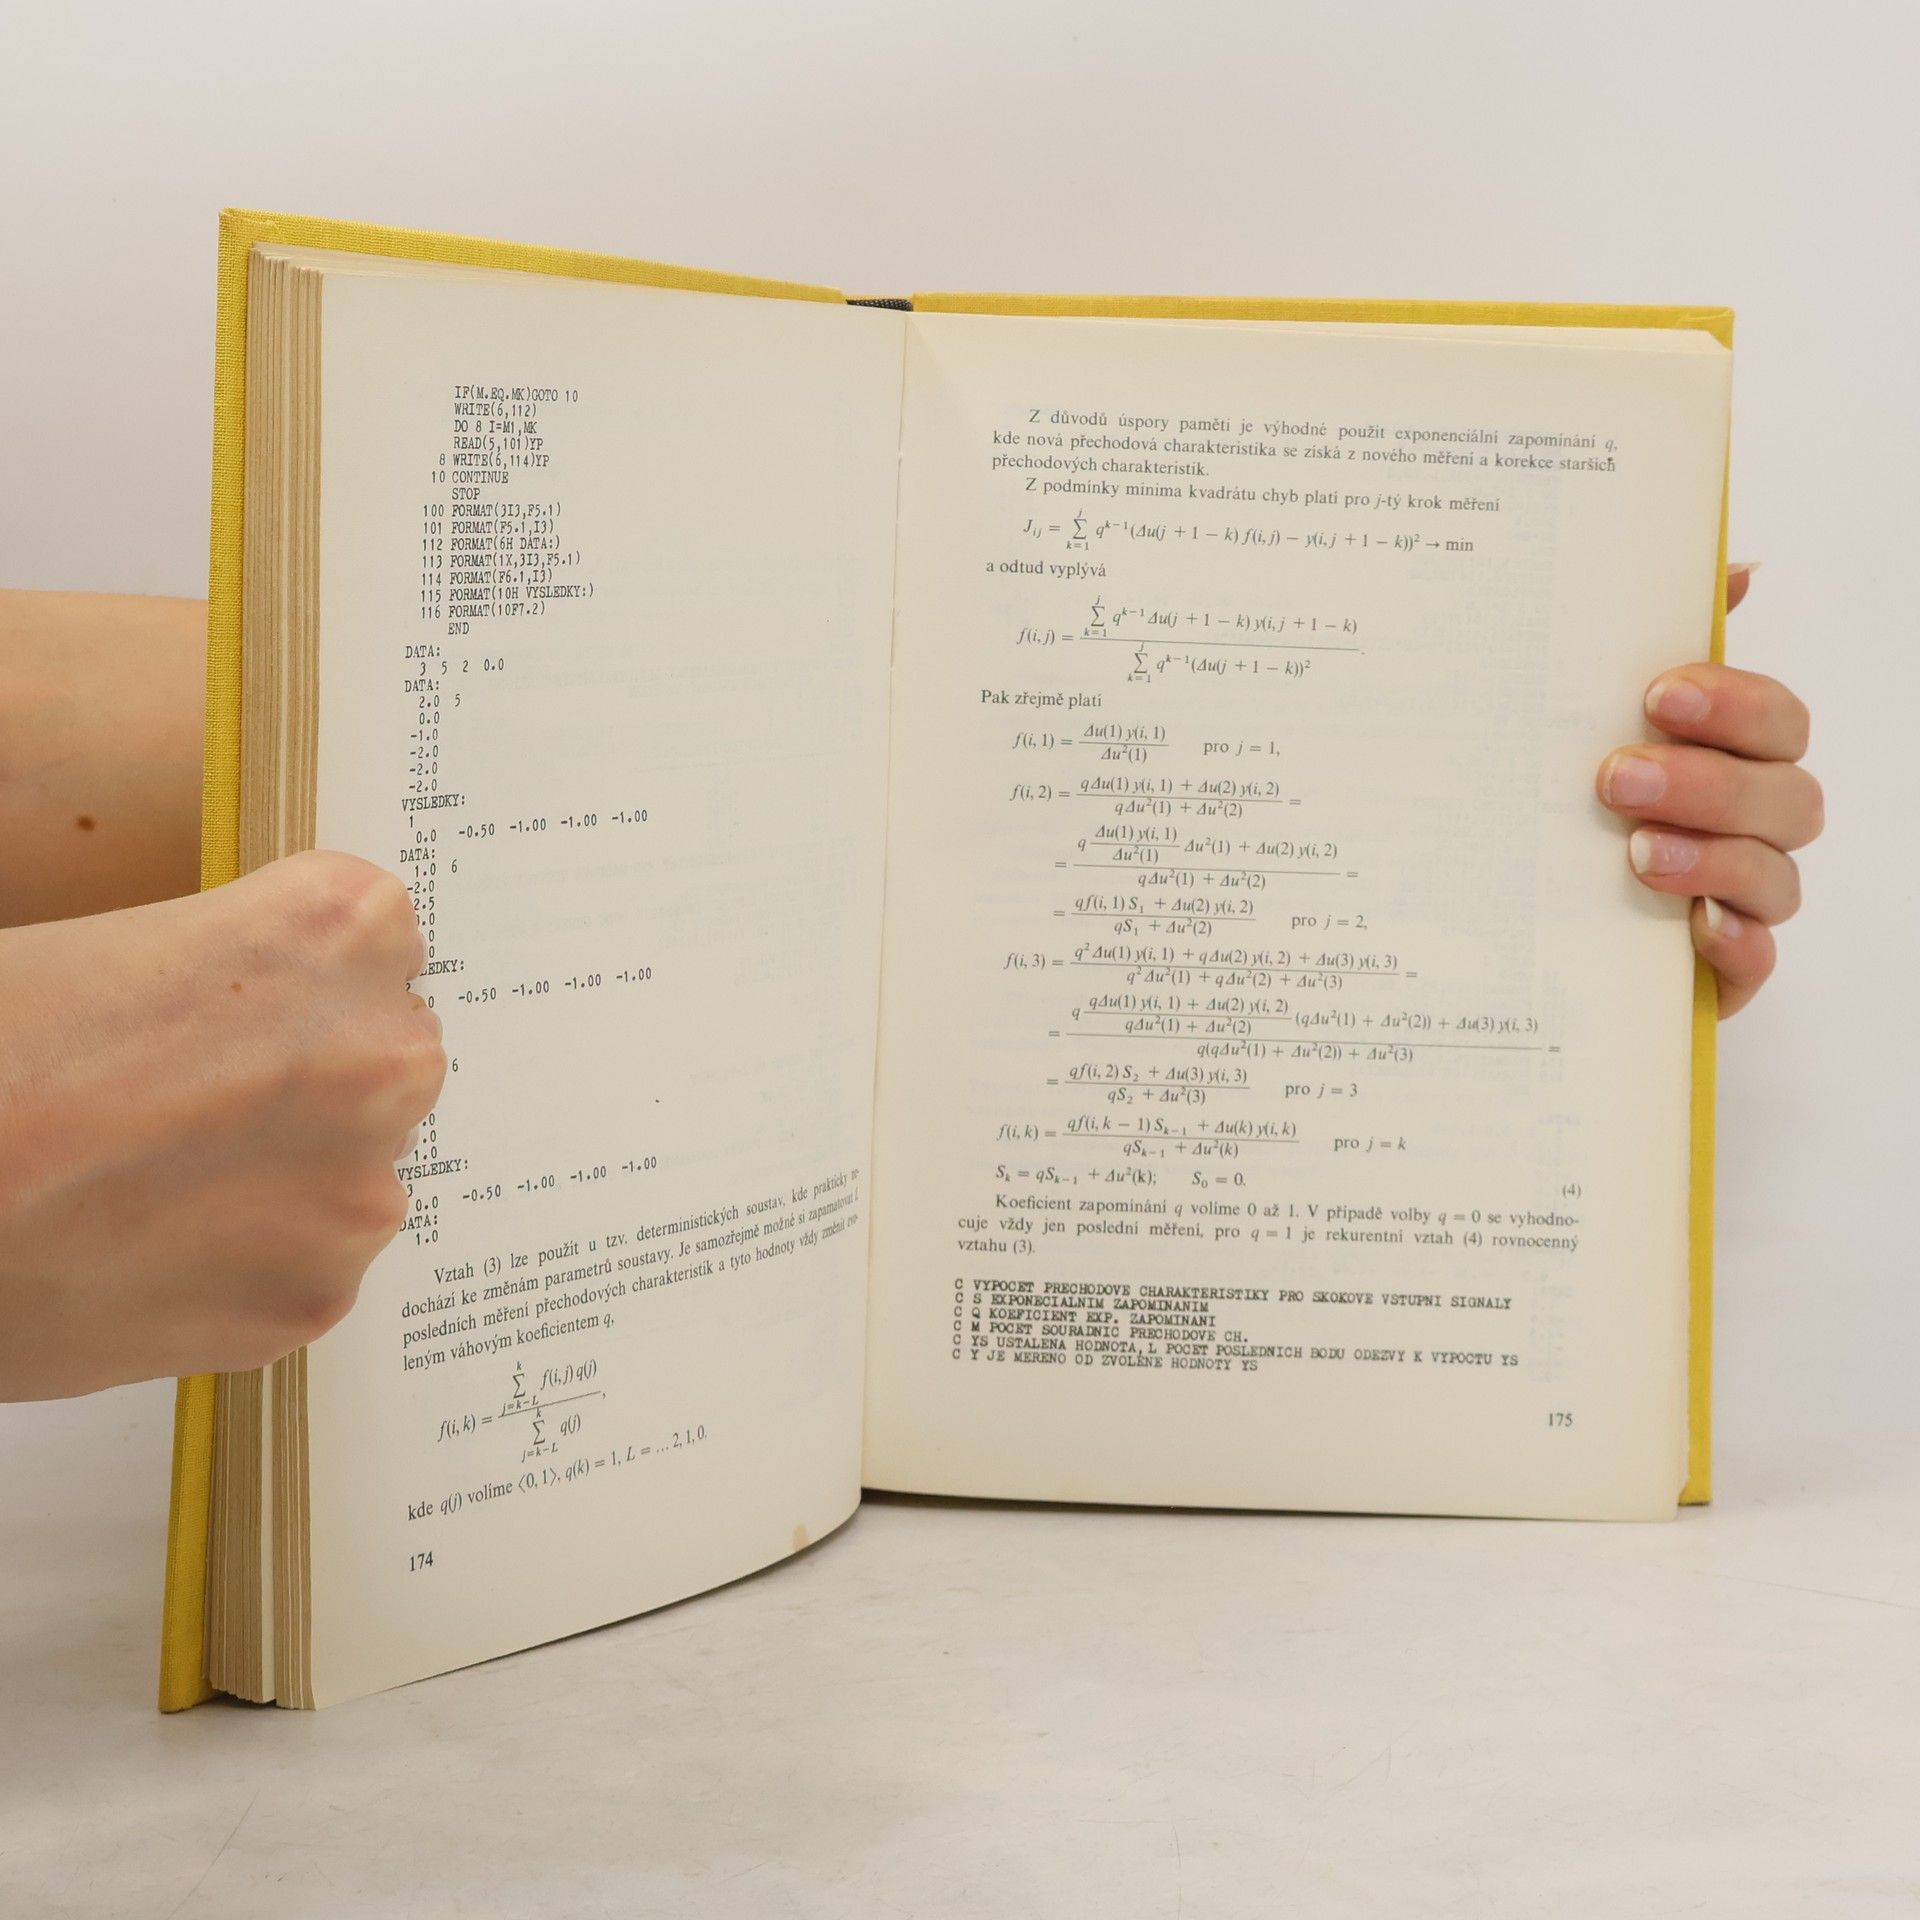 IF(M.EQ.MK)GOTO 10
WRITE(6,112)
DO 8 I=M1,MK
READ(5,101)YP
8 WRITE(6,114)YP
10 CONTINUE
STOP
100 FORMAT(3I3,F5.1)
101 FORMAT(F5.1,I3)
112 FORMAT(6H DATA:)
113 FORMAT(1X,3I3,F5.1)
114 FORMAT(F6.1,I3)
115 FORMAT(10H VYSLEDKY:)
116 FORMAT(10F7.2)
END
DATA:
3 5 2 0.0
DATA:
2.0 5
0.0
-1.0
-2.0
-2.0
-2.0
VYSLEDKY:
1
0.0 -0.50 -1.00 -1.00 -1.00
DATA:
1.0 6
-2.0
2.5
.0
0
0
LEDKY:
0 -0.50 -1.00 -1.00 -1.00
6
.0
.0
1.0
VYSLEDKY:
3
0.0 -0.50 -1.00 -1.00 -1.00
DATA:
1.0
Vztah (3) lze použít u tzv. deterministických soustav, kde prakticky ne-
dochází ke změnám parametrů soustavy. Je samozřejmě možné si zapamatovat L
posledních měření přechodových charakteristik a tyto hodnoty vždy změnit zvo-
leným váhovým koeficientem q,
f(i, k) = \frac{\sum_{j=k-L}^{k} f(i, j) q(j)}{\sum_{j=k-L}^{k} q(j)},
kde q(j) volíme ⟨0, 1⟩, q(k) = 1, L = ... 2, 1, 0.
174
Z důvodů úspory paměti je výhodné použít exponenciální zapomínání q,
kde nová přechodová charakteristika se získá z nového měření a korekce starších
přechodových charakteristik.
Z podmínky minima kvadrátu chyb platí pro j-tý krok měření
J_{ij} = \sum_{k=1}^{j} q^{k-1}(Δu(j + 1 − k) f(i, j) − y(i, j + 1 − k))² → min
a odtud vyplývá
f(i, j) = \frac{\sum_{k=1}^{j} q^{k-1} Δu(j + 1 − k) y(i, j + 1 − k)}{\sum_{k=1}^{j} q^{k-1}(Δu(j + 1 − k))²}.
Pak zřejmě platí
f(i, 1) = \frac{Δu(1) y(i, 1)}{Δu²(1)} pro j = 1,
f(i, 2) = \frac{qΔu(1) y(i, 1) + Δu(2) y(i, 2)}{qΔu²(1) + Δu²(2)} =
= \frac{q \frac{Δu(1) y(i, 1)}{Δu²(1)} Δu²(1) + Δu(2) y(i, 2)}{qΔu²(1) + Δu²(2)} =
= \frac{qf(i, 1) S_1 + Δu(2) y(i, 2)}{qS_1 + Δu²(2)} pro j = 2,
f(i, 3) = \frac{q² Δu(1) y(i, 1) + qΔu(2) y(i, 2) + Δu(3) y(i, 3)}{q² Δu²(1) + qΔu²(2) + Δu²(3)} =
= \frac{q \frac{qΔu(1) y(i, 1) + Δu(2) y(i, 2)}{qΔu²(1) + Δu²(2)} (qΔu²(1) + Δu²(2)) + Δu(3) y(i, 3)}{q(qΔu²(1) + Δu²(2)) + Δu²(3)} =
= \frac{qf(i, 2) S_2 + Δu(3) y(i, 3)}{qS_2 + Δu²(3)} pro j = 3
f(i, k) = \frac{qf(i, k − 1) S_{k−1} + Δu(k) y(i, k)}{qS_{k−1} + Δu²(k)} pro j = k
S_k = qS_{k−1} + Δu²(k); S_0 = 0. (4)
Koeficient zapomínání q volíme 0 až 1. V případě volby q = 0 se vyhodno-
cuje vždy jen poslední měření, pro q = 1 je rekurentní vztah (4) rovnocenný
vztahu (3).
C VYPOCET PRECHODOVE CHARAKTERISTIKY PRO SKOKOVE VSTUPNI SIGNALY
C S EXPONECIALNIM ZAPOMINANIM
C Q KOEFICIENT EXP. ZAPOMINANI
C M POCET SOURADNIC PRECHODOVE CH.
C YS USTALENA HODNOTA, L POCET POSLEDNICH BODU ODEZVY K VYPOCTU YS
C Y JE MERENO OD ZVOLENE HODNOTY YS
175